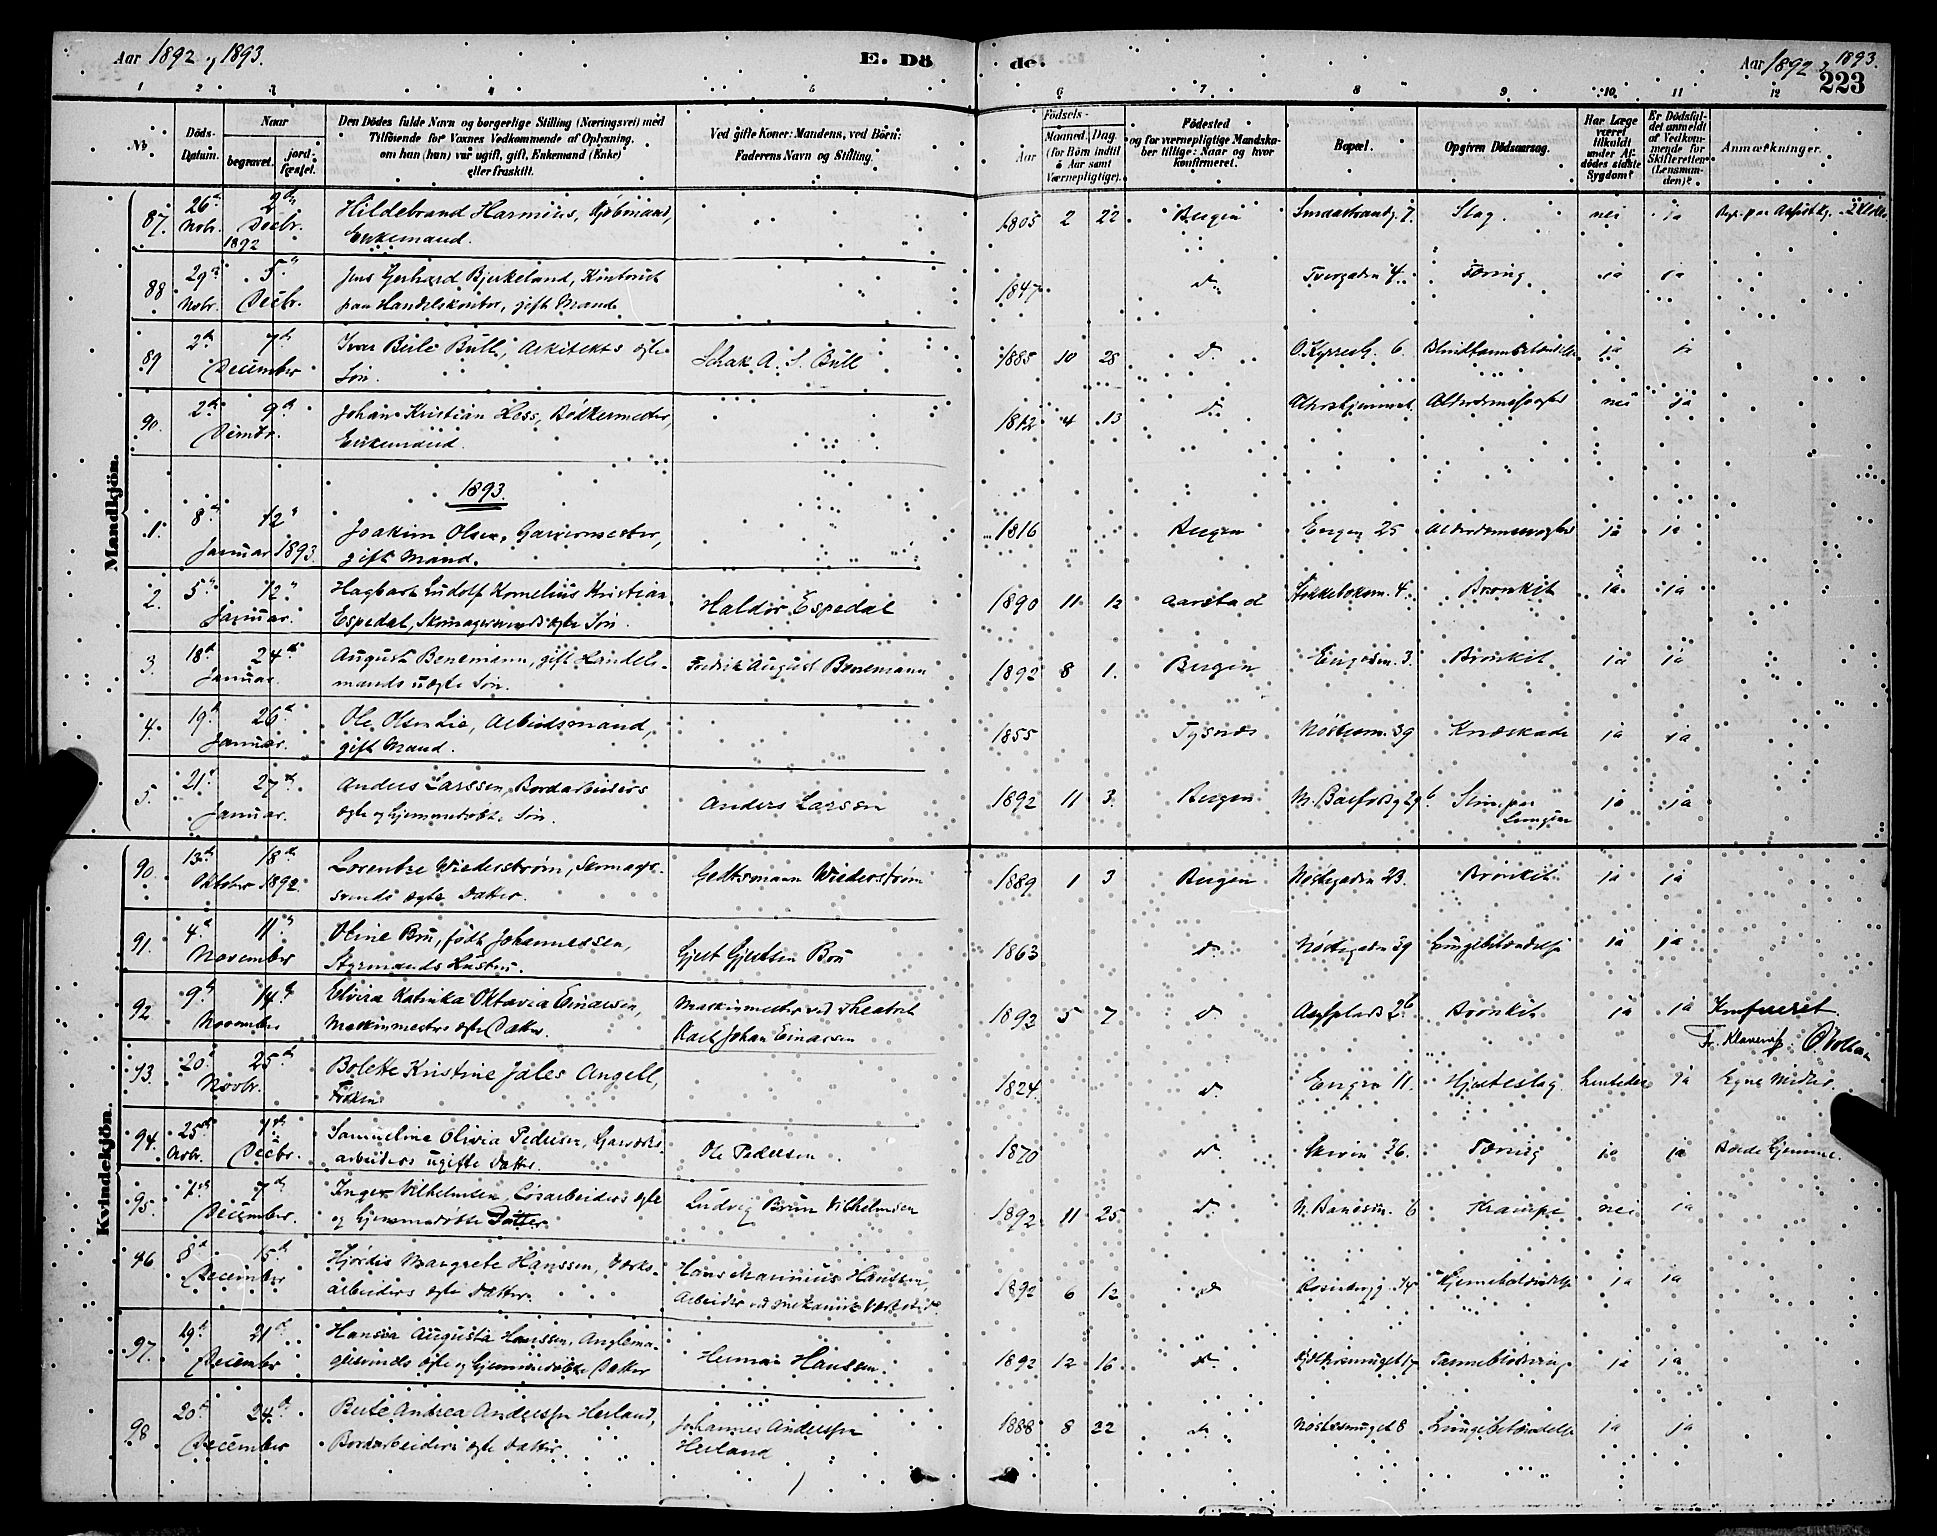 Aar 1892 og 1893.
E. Dö de.
Aar 1892 & 1893.
223
1 2 3 4 5 6 7 8 9 10 11 12
No
Döds-
Datum.
Naar
begravet.
jord-
fæstet.
Den Dödes fulde Navn og borgerlige Stilling (Næringsvei) med
Tilföiende for Voxnes Vedkommende af Oplysning,
om han (hun) var ugift, gift, Enkemand (Enke)
eller fraskilt.
Ved gifte Koner: Mandens, ved Börn:
Faderens Navn og Stilling.
Födsels-
Aar
Maaned. Dag.
(for Börn indtil
Aar samt
Værnepligtige).
Födested
og for værnepligtige Mandska-
ber tillige: Naar og hvor
konfirmeret.
Bopæl.
Opgiven Dödsaarsag.
Har Læge
været
tilkaldt
under Af-
dödes sidste
Sygdom?
Er Dödsfal-
det anmeldt
af Vedkom-
mende for
Skifteretten
(Lensman-
den)?
Anmærkninger.
Mandkjön.
87. 26de 2den Hildebrand Harmens, Kjøbmand, 1805 2 22 Bergen Smaastrandg. 7. Slag. nei ja
Nobr. Decbr. Enkemand.
1892
88 29de 5te Jens Gerhard Bjerkeland, Kontorist 1847 do Tvergaden 4. Tæring ja ja
Nobr. Decbr. paa Handelskontor, gift Mand
89 2den 7de Ivar Beile Bull, Arkitekts ægte Schak A. S. Bull 1885 10 28 do O. Kyrresg. 6. ja ja
December Søn.
90. 2den 9de Johan Kristian Loss, Bødkermester, 1812 4 13 do nei ja
Decmbr. Enkemand.
1893.
1. 8de 12te Joakim Olsen, Garvermester, 1816 Bergen Engen 25 ja ja
Januar 1893. gift Mand.
2. 5te 12te Hagbart Ludolf Kornelius Kristian Haldor Espedal 1890 11 12 Aarstad Bronkit ja ja
Januar. Espedal, Skomagersvends ægte Søn.
3. 18de 24de August Benemann, gift Handels- Fredrik August Benemann 1892 8 1. Bergen 3. Bronkit ja ja
Januar. mands uægte Søn.
4. 19de 26de Ole Olsen Lie, Arbeidsmand, 1855 Tysnes 39 Knæskade ja ja
Januar. gift Mand.
5. 21de 27de Anders Larssen, Bordarbeiders Anders Larsen 1892 11 3. Bergen Slim paa ja ja
Januar. ægte og hjemmedøbte Søn. Lungen
Kvindekjön.
90. 13de 18de Lorentze Wiederstrøm, Skomager- Gedtsmann Wiederstrøm 1889 1 3 Bergen Nøstegaden 23. Bronkit ja ja
Oktober 1892. svends ægte Datter.
91. 4de 11te Oline Bru, født Johannessen, Gjert Gjertsen Bru 1863 do Nøstegaden 39 Lungebetændelse ja ja
November Styrmands Hustru.
92 9de 14de Elvira Katinka Oktavia Einarsen, Maskinmester ved Theatret 1892 5 7 do Bronkit ja ja Konfereret.
November Maskinmesters ægte Datter. Karl Johan Einarsen
93. 20de 25de Bolette Kristine Jales Angell, 1824. do Engen 11. Hjerteslag. ja Egne Midler.
Novbr. Frøken
94. 25de 1ste Samueline Olivia Pedersen, Gasværks- Ole Pedersen 1870 do 36. Tæring ja ja
Nobr. Decbr. arbeiders ugifte Datter.
95. 1ste 7de Inger Vilhelmsen, Løsarbeiders ægte Ludvig Brun Vilhelmsen 1892 11 25 do 6 Krampe nei ja
December. og hjemmedøbte Datter.
96 8de 15de Hjørdis Margrete Hanssen, Værks- Hans Marinius Hanssen, 1892 6 12 do Hjernebetændelse ja ja
December arbeiders ægte Datter. Arbeider ved mekanisk Værksted.
97. 19de 21de Hansia Augusta Hanssen, Anglema- Herman Hanssen. 1892 12 16 do ja ja
December gersvends ægte og hjemmedøbte Datter
98 20de 24de Berte Andrea Anderssen Herland, Johannes Anderssen 1888 8 22 do Nøstesmuget 8 Lungebetændelse ja ja
December Bordarbeiders ægte Datter. Herland